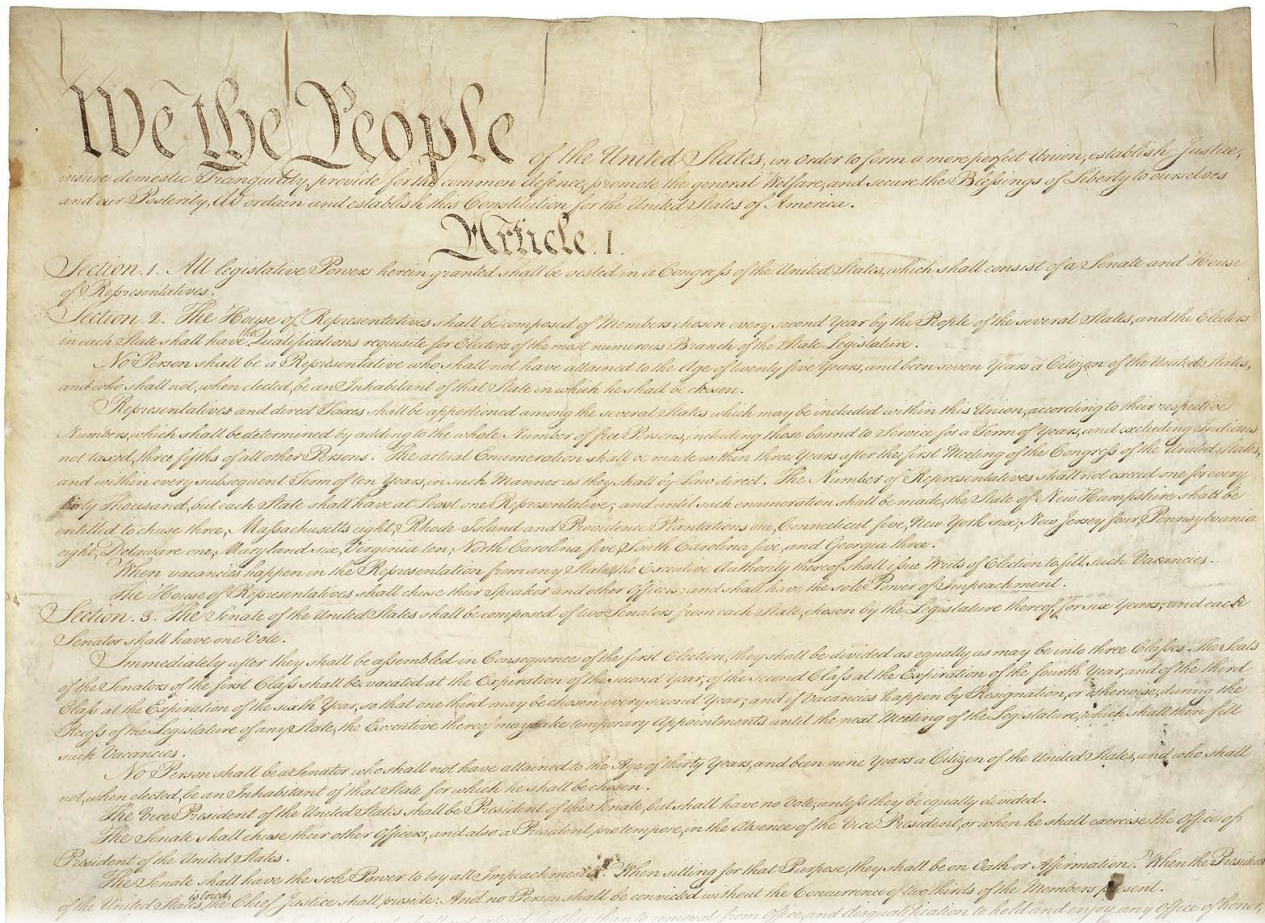 We the People of the United States, in Order to form a more perfect Union, establish Justice,
insure domestic Tranquility, provide for the common defence, promote the general Welfare, and secure the Blessings of Liberty to ourselves
and our Posterity, do ordain and establish this Constitution for the United States of America.
Article. I.
Section. 1. All legislative Powers herein granted shall be vested in a Congress of the United States, which shall consist of a Senate and House
of Representatives.
Section. 2. The House of Representatives shall be composed of Members chosen every second Year by the People of the several States, and the Electors
in each State shall have the Qualifications requisite for Electors of the most numerous Branch of the State Legislature.
No Person shall be a Representative who shall not have attained to the Age of twenty five Years, and been seven Years a Citizen of the United States,
and who shall not, when elected, be an Inhabitant of that State in which he shall be chosen.
Representatives and direct Taxes shall be apportioned among the several States which may be included within this Union, according to their respective
Numbers, which shall be determined by adding to the whole Number of free Persons, including those bound to Service for a Term of Years, and excluding Indians
not taxed, three fifths of all other Persons. The actual Enumeration shall be made within three Years after the first Meeting of the Congress of the United States,
and within every subsequent Term of ten Years, in such Manner as they shall by Law direct. The Number of Representatives shall not exceed one for every
thirty Thousand, but each State shall have at Least one Representative; and until such enumeration shall be made, the State of New Hampshire shall be
entitled to chuse three, Massachusetts eight, Rhode Island and Providence Plantations one, Connecticut five, New York six, New Jersey four, Pennsylvania
eight, Delaware one, Maryland six, Virginia ten, North Carolina five, South Carolina five, and Georgia three.
When vacancies happen in the Representation from any State, the Executive Authority thereof shall issue Writs of Election to fill such Vacancies.
The House of Representatives shall chuse their Speaker and other Officers; and shall have the sole Power of Impeachment.
Section. 3. The Senate of the United States shall be composed of two Senators from each State, chosen by the Legislature thereof, for six Years; and each
Senator shall have one Vote.
Immediately after they shall be assembled in Consequence of the first Election, they shall be divided as equally as may be into three Classes. The Seats
of the Senators of the first Class shall be vacated at the Expiration of the second Year, of the second Class at the Expiration of the fourth Year, and of the third
Class at the Expiration of the sixth Year, so that one third may be chosen every second Year; and if Vacancies happen by Resignation, or otherwise, during the
Recess of the Legislature of any State, the Executive thereof may make temporary Appointments until the next Meeting of the Legislature, which shall then fill
such Vacancies.
No Person shall be a Senator who shall not have attained to the Age of thirty Years, and been nine Years a Citizen of the United States, and who shall
not, when elected, be an Inhabitant of that State for which he shall be chosen.
The Vice President of the United States shall be President of the Senate, but shall have no Vote, unless they be equally divided.
The Senate shall chuse their other Officers, and also a President pro tempore, in the Absence of the Vice President, or when he shall exercise the Office of
President of the United States.
The Senate shall have the sole Power to try all Impeachments. When sitting for that Purpose, they shall be on Oath or Affirmation. When the President
of the United States is tried, the Chief Justice shall preside: And no Person shall be convicted without the Concurrence of two thirds of the Members present.